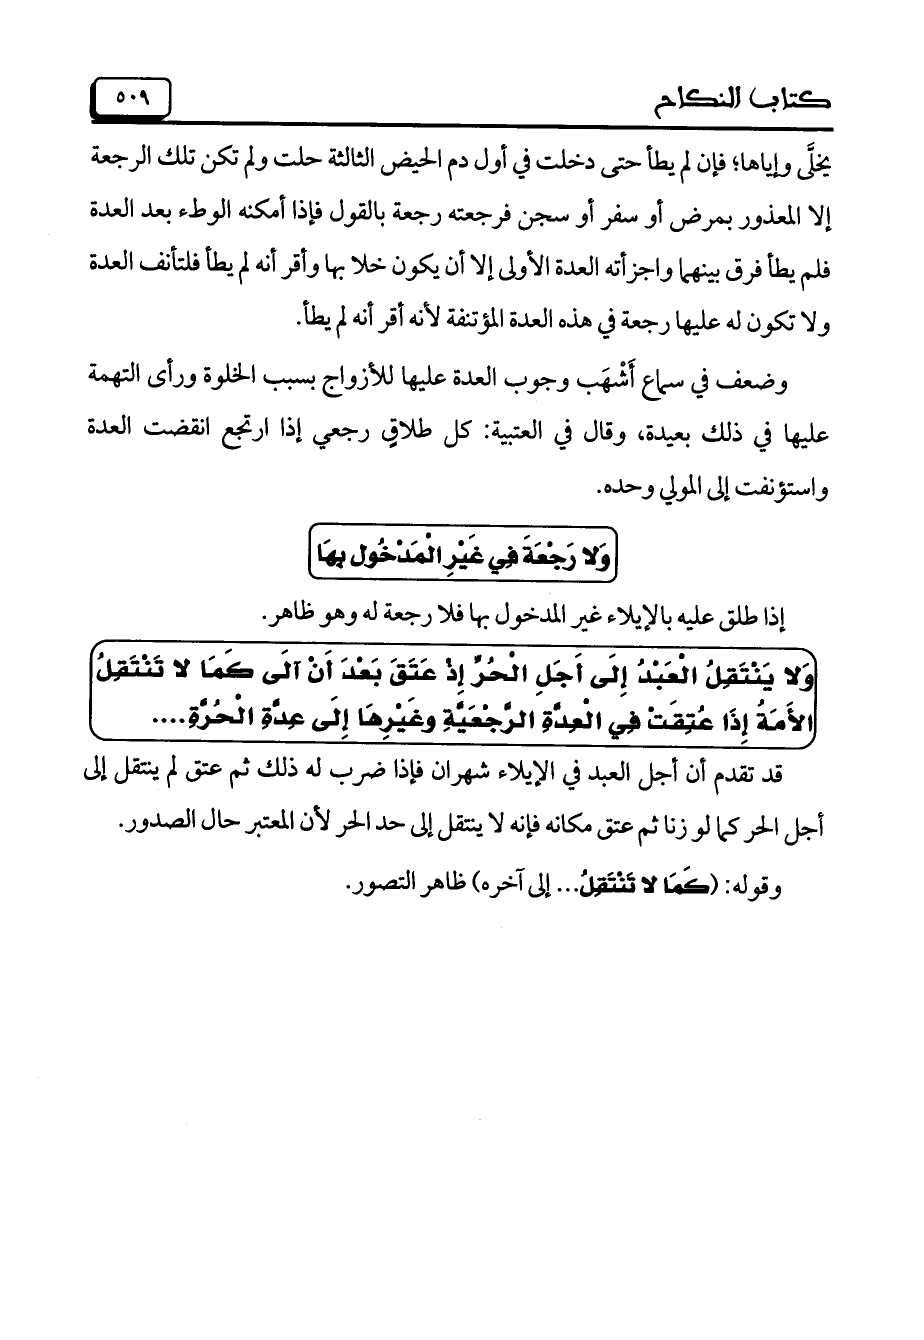 كتاب النكاح
٥٠٩
يخلَّى وإياها؛ فإن لم يطأ حتى دخلت في أول دم الحيض الثالثة حلت ولم تكن تلك الرجعة
إلا المعذور بمرض أو سفر أو سجن فرجعته رجعة بالقول فإذا أمكنه الوطء بعد العدة
فلم يطأ فرق بينهما واجزأته العدة الأولى إلا أن يكون خلا بها وأقر أنه لم يطأ فلتأنف العدة
ولا تكون له عليها رجعة في هذه العدة المؤتنفة لأنه أقر أنه لم يطأ.
وضعف في سماع أَشْهَب وجوب العدة عليها للأزواج بسبب الخلوة ورأى التهمة
عليها في ذلك بعيدة، وقال في العتبية: كل طلاقٍ رجعي إذا ارتجع انقضت العدة
واستؤنفت إلى المولي وحده.
وَلا رَجْعَةَ فِي غَيْرِ الْمَدْخُولِ بِهَا
إذا طلق عليه بالإيلاء غير المدخول بها فلا رجعة له وهو ظاهر.
وَلا يَنْتَقِلُ الْعَبْدُ إِلَى أَجَلِ الْحُرِّ إِذْ عَتَقَ بَعْدَ أَنْ آلَى كَمَا لا تَنْتَقِلُ
الأَمَةُ إِذَا عُتِقَتْ فِي الْعِدَّةِ الرَّجْعَيَّةِ وغَيْرِهَا إِلَى عِدَّةِ الْحُرَّةِ....
قد تقدم أن أجل العبد في الإيلاء شهران فإذا ضرب له ذلك ثم عتق لم ينتقل إلى
أجل الحر كما لو زنا ثم عتق مكانه فإنه لا ينتقل إلى حد الحر لأن المعتبر حال الصدور.
وقوله: (كَمَا لا تَنْتَقِلُ... إلى آخره) ظاهر التصور.